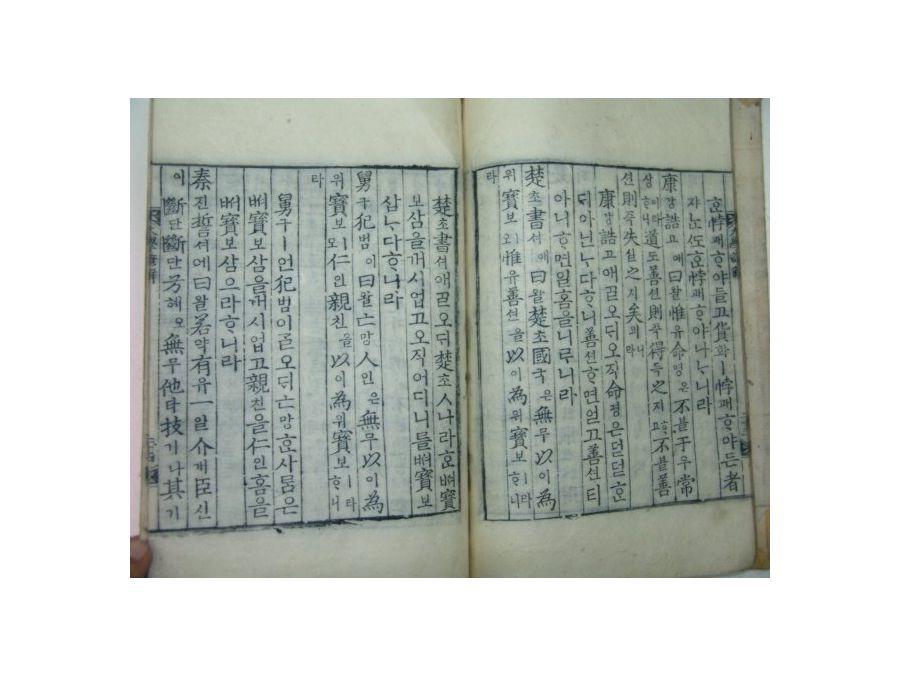 ᄒᆞᆫ悖패ᄒᆞ야들고貨화ㅣ悖패ᄒᆞ야든者
쟈ᄂᆞᆫᄯᅩᄒᆞᆫ悖패ᄒᆞ야나ᄂᆞ니라
康강誥고애曰왈惟유命명은不블于우常
샹이라ᄒᆞ니道도善션則즉得득之지ᄒᆞ고不블善
션則즉失실之지矣의니라
康강誥고애ᄀᆞᆯ오ᄃᆡ오직命명은덛덛ᄒᆞᆫ
ᄃᆡ아닌ᄂᆞ다ᄒᆞ니善션ᄒᆞ면얻고善션티
아니ᄒᆞ면일홈을니ᄅᆞ니라
楚초書셔에曰왈楚초國국은無무以이為
위寶보ㅣ오惟유善션을以이為위寶보ㅣ라ᄒᆞ니
라
楚초書셔애ᄀᆞᆯ오ᄃᆡ楚초ㅅ나라ᄒᆞᆫᄡᅥ寶
보삼을개시업고오직어디니ᄅᆞᆯᄡᅥ寶보
삼ᄂᆞ다ᄒᆞ니라
舅구犯범이曰왈亡망人인은無무以이為
위寶보ㅣ오仁인親친을以이為위寶보ㅣ라ᄒᆞ니
라
舅구ㅣ언犯범이ᄀᆞᆯ오ᄃᆡ亡망ᄒᆞᆫ사ᄅᆞᆷ은
ᄡᅥ寶보삼을개시업고親친을仁인홈을
ᄡᅥ寶보삼으라ᄒᆞ니라
秦진誓셔에曰왈若약有유一일介개臣신
이斷단斷단兮혜오無무他타技기나其기